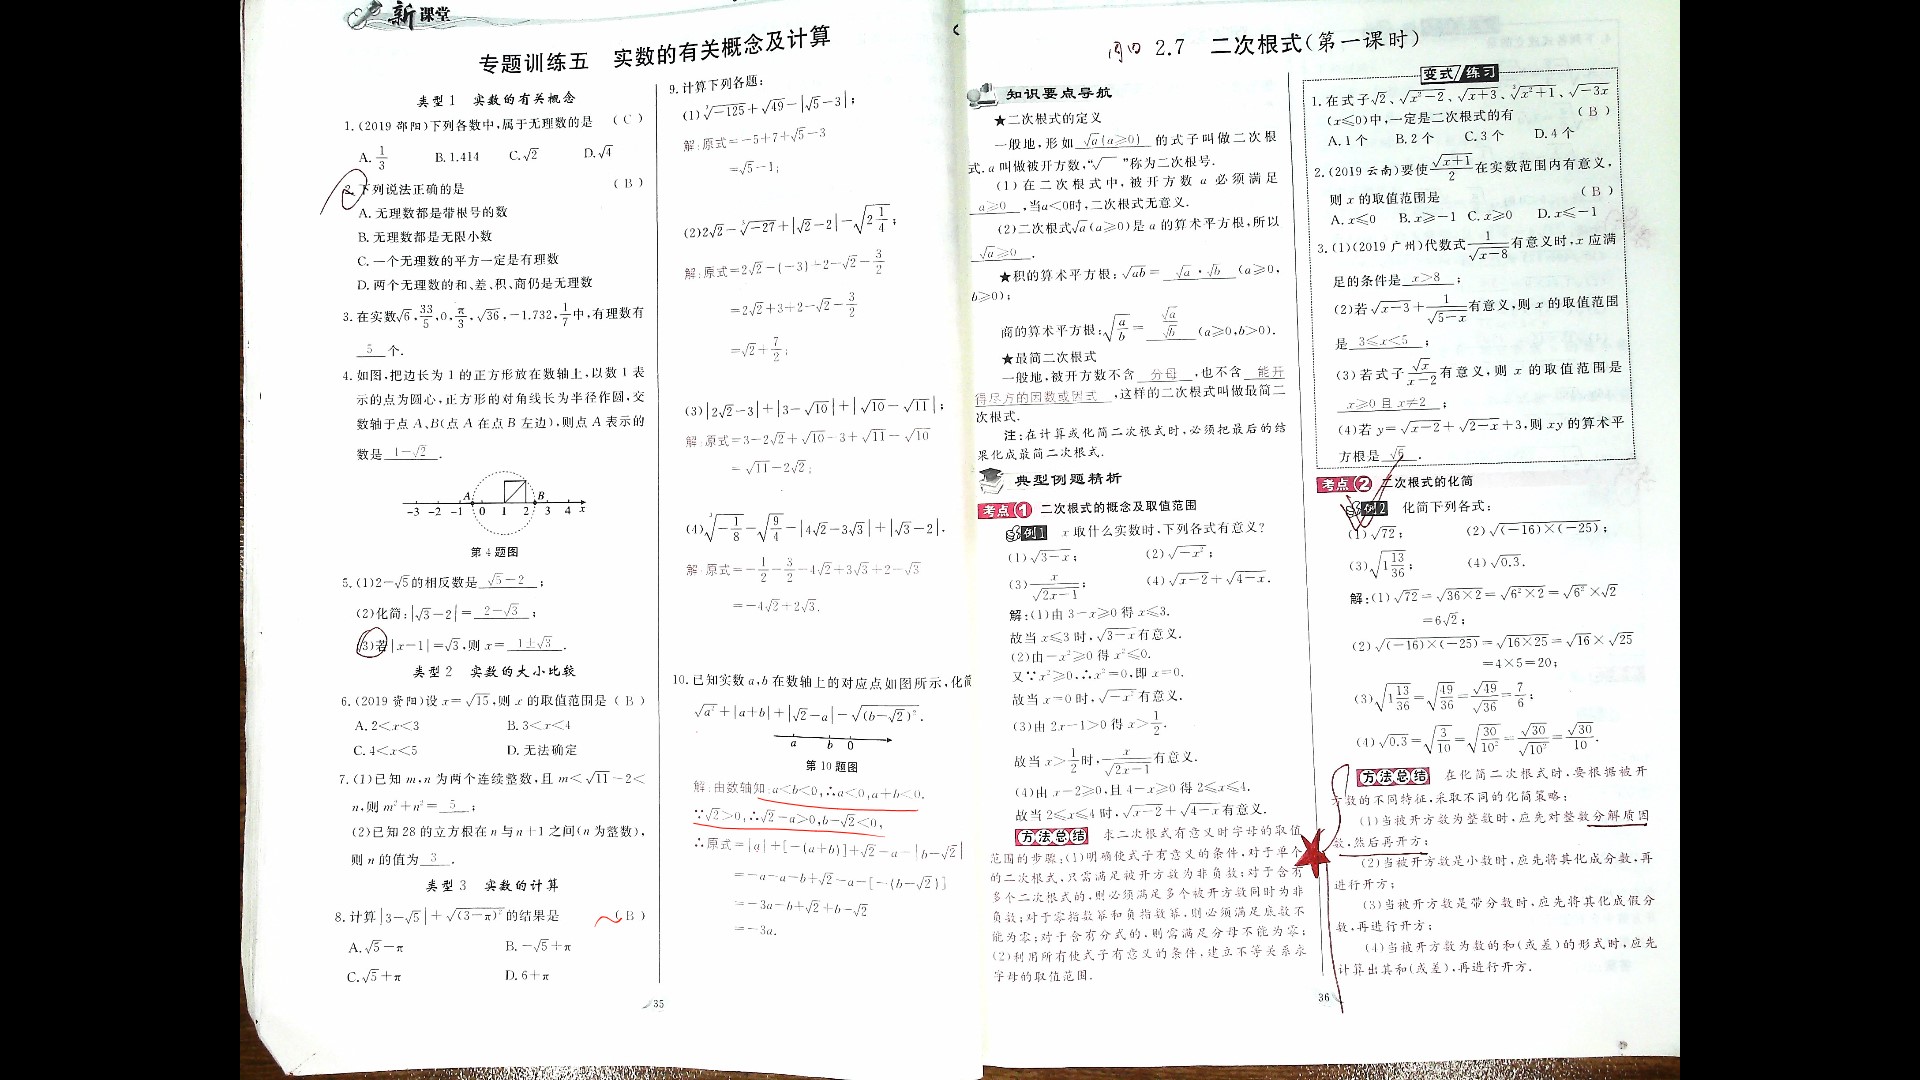 新课堂
专题训练五 实数的有关概念及计算
类型1 实数的有关概念
1.(2019邵阳)下列各数中,属于无理数的是 (C)
A.1/3 B.1.414 C.√2 D.√4
2.下列说法正确的是 (B)
A.无理数都是带根号的数
B.无理数都是无限小数
C.一个无理数的平方一定是有理数
D.两个无理数的和、差、积、商仍是无理数
3.在实数√6,33/5,0,π/3,√36,-1.732,1/7中,有理数有
5 个.
4.如图,把边长为1的正方形放在数轴上,以数1表
示的点为圆心,正方形的对角线长为半径作圆,交
数轴于点A,B(点A在点B左边),则点A表示的
数是 1-√2 .
A B
-3 -2 -1 0 1 2 3 4 x
第4题图
5.(1)2-√5的相反数是 √5-2 ;
(2)化简:|√3-2|= 2-√3 ;
(3)若|x-1|=√3,则x= 1±√3 .
类型2 实数的大小比较
6.(2019资阳)设x=√15,则x的取值范围是(B)
A.2<x<3 B.3<x<4
C.4<x<5 D.无法确定
7.(1)已知m,n为两个连续整数,且m<√11-2<
n,则m²+n²= 5 ;
(2)已知28的立方根在n与n+1之间(n为整数),
则n的值为 3 .
类型3 实数的计算
8.计算|3-√5|+√(3-π)²的结果是 (B)
A.√5-π B.-√5+π
C.√5+π D.6+π
9.计算下列各题:
(1)∛-125+√49-|√5-3|;
解:原式=-5+7+√5-3
=√5-1;
(2)2√2-∛-27+|√2-2|-√(2 1/4);
解:原式=2√2-(-3)+2-√2-3/2
=2√2+3+2-√2-3/2
=√2+7/2;
(3)|2√2-3|+|3-√10|+|√10-√11|;
解:原式=3-2√2+√10-3+√11-√10
=√11-2√2;
(4)∛(-1/8)-√(9/4)-|4√2-3√3|+|√3-2|.
解:原式=-1/2-3/2-4√2+3√3+2-√3
=-4√2+2√3.
10.已知实数a,b在数轴上的对应点如图所示,化简
√a²+|a+b|+|√2-a|-√(b-√2)².
a b 0
第10题图
解:由数轴知:a<b<0,∴a<0,a+b<0.
∵√2>0,∴√2-a>0,b-√2<0,
∴原式=|a|+[-(a+b)]+√2-a-|b-√2|
=-a-a-b+√2-a-[-(b-√2)]
=-3a-b+√2+b-√2
=-3a.
35
2.7 二次根式(第一课时)
知识要点导航
★二次根式的定义
一般地,形如 √a(a≥0) 的式子叫做二次根
式.a叫做被开方数,“√ ”称为二次根号.
(1)在二次根式中,被开方数a必须满足
a≥0 ,当a<0时,二次根式无意义.
(2)二次根式√a(a≥0)是a的算术平方根,所以
√a≥0 .
★积的算术平方根:√ab= √a·√b (a≥0,
b≥0);
商的算术平方根:√(a/b)= √a/√b (a≥0,b>0).
★最简二次根式
一般地,被开方数不含 分母 ,也不含 能开
得尽方的因数或因式 ,这样的二次根式叫做最简二
次根式.
注:在计算或化简二次根式时,必须把最后的结
果化成最简二次根式.
典型例题精析
考点1 二次根式的概念及取值范围
例1 x取什么实数时,下列各式有意义?
(1)√(3-x); (2)√(-x²);
(3)x/√(2x-1); (4)√(x-2)+√(4-x).
解:(1)由3-x≥0得x≤3.
故当x≤3时,√(3-x)有意义.
(2)由-x²≥0得x²≤0.
又∵x²≥0,∴x²=0,即x=0.
故当x=0时,√(-x²)有意义.
(3)由2x-1>0得x>1/2.
故当x>1/2时,x/√(2x-1)有意义.
(4)由x-2≥0,且4-x≥0得2≤x≤4.
故当2≤x≤4时,√(x-2)+√(4-x)有意义.
方法总结 求二次根式有意义时字母的取值
范围的步骤:(1)明确使式子有意义的条件,对于单个
的二次根式,只需满足被开方数为非负数;对于含有
多个二次根式的,则必须满足多个被开方数同时为非
负数;对于零指数幂和负指数幂,则必须满足底数不
能为零;对于含有分式的,则需满足分母不能为零;
(2)利用所有使式子有意义的条件,建立不等关系求
字母的取值范围.
变式/练习
1.在式子√2、√(x²-2)、√(x+3)、∛(x²+1)、√(-3x)
(x≤0)中,一定是二次根式的有 (B)
A.1个 B.2个 C.3个 D.4个
2.(2019云南)要使√(x+1)/2在实数范围内有意义,
则x的取值范围是 (B)
A.x≤0 B.x≥-1 C.x≥0 D.x≤-1
3.(1)(2019广州)代数式1/√(x-8)有意义时,x应满
足的条件是 x>8 ;
(2)若√(x-3)+1/√(5-x)有意义,则x的取值范围
是 3≤x<5 ;
(3)若式子√x/(x-2)有意义,则x的取值范围是
x≥0且x≠2 ;
(4)若y=√(x-2)+√(2-x)+3,则xy的算术平
方根是 √6 .
考点2 二次根式的化简
例2 化简下列各式:
(1)√72; (2)√((-16)×(-25));
(3)√(1 13/36); (4)√0.3.
解:(1)√72=√(36×2)=√(6²×2)=√6²×√2
=6√2;
(2)√((-16)×(-25))=√(16×25)=√16×√25
=4×5=20;
(3)√(1 13/36)=√(49/36)=√49/√36=7/6;
(4)√0.3=√(3/10)=√(30/10²)=√30/√10²=√30/10.
方法总结 在化简二次根式时,要根据被开
方数的不同特征,采取不同的化简策略:
(1)当被开方数为整数时,应先对整数分解质因
数,然后再开方;
(2)当被开方数是小数时,应先将其化成分数,再
进行开方;
(3)当被开方数是带分数时,应先将其化成假分
数,再进行开方;
(4)当被开方数为数的和(或差)的形式时,应先
计算出其和(或差),再进行开方.
36